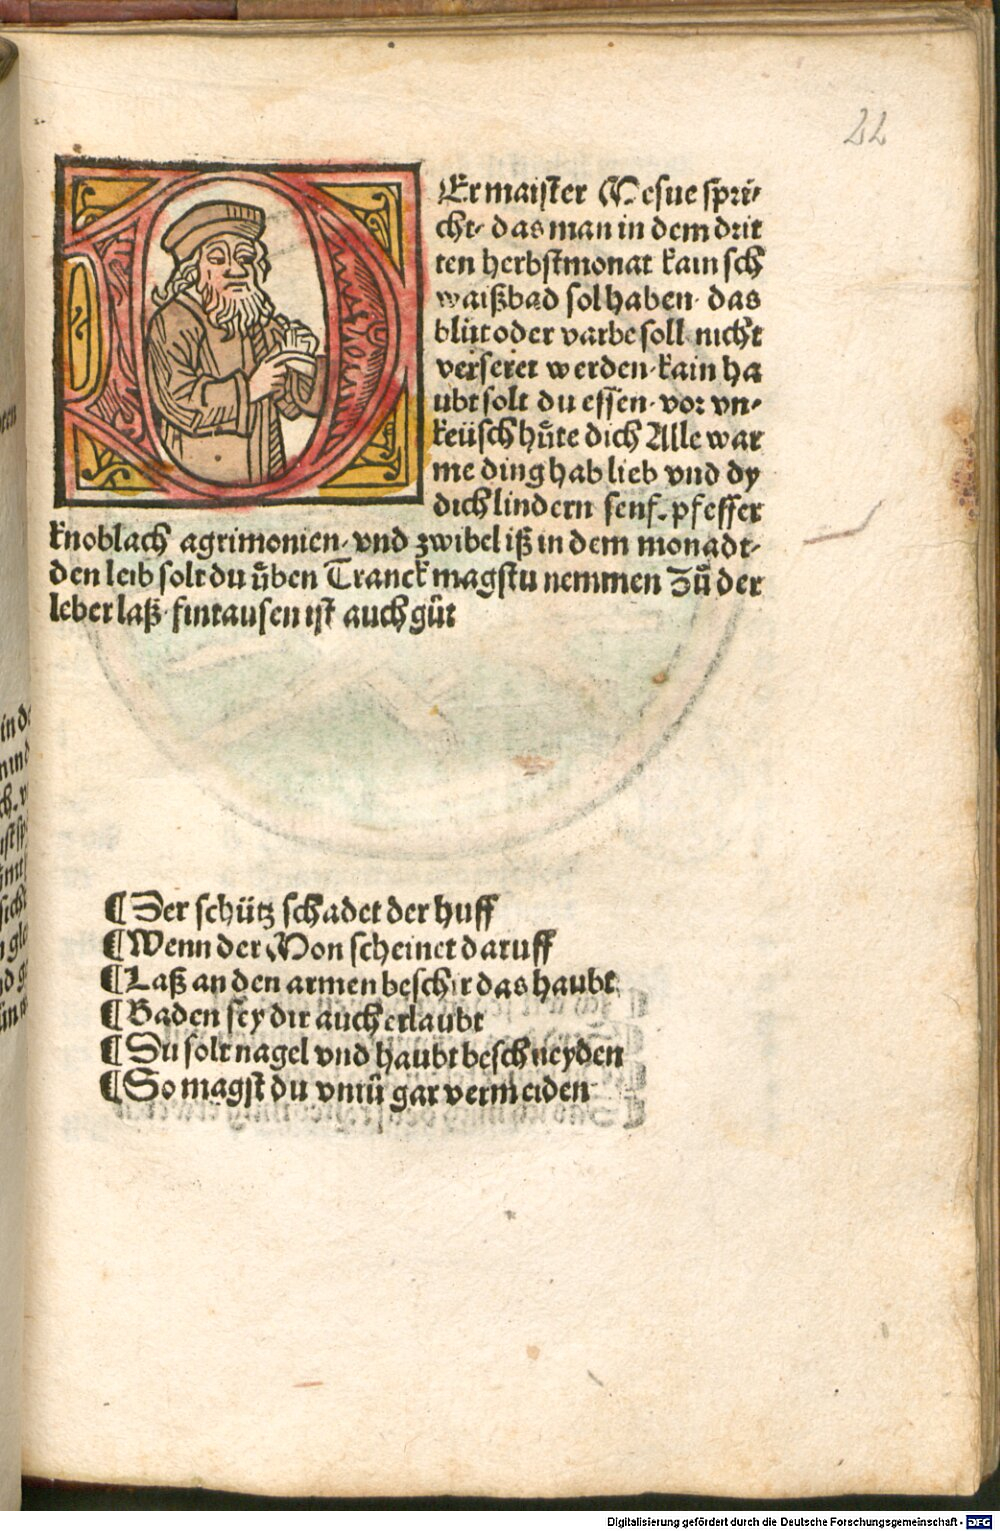 22
Er maister Mesue spri⸗
cht⸗ das man in dem drit
ten herbstmonat kain sch
waißbad sol haben· das
blůt oder varbe soll nicht
verseret werden· kain ha
ubt solt du essen· vor vn⸗
keüsch hůte dich Alle war
me ding hab lieb vnd dy
dich lindern senf. pfeffer
knoblach agrimonien· vnd zwibel iß in dem monadt⸗
den leib solt du ůben Tranck magstu nemmen Zů der
leber laß· fintausen ist auch gůt
¶ Der schütz schadet der huff
¶ Wenn der Mon scheinet daruff
¶ Laß an den armen beschir das haubt
¶ Baden sey dir auch erlaubt
¶ Du solt nagel vnd haubt beschneyden
¶ So magst du vntů gar vermeiden
Digitalisierung gefördert durch die Deutsche Forschungsgemeinschaft - DFG